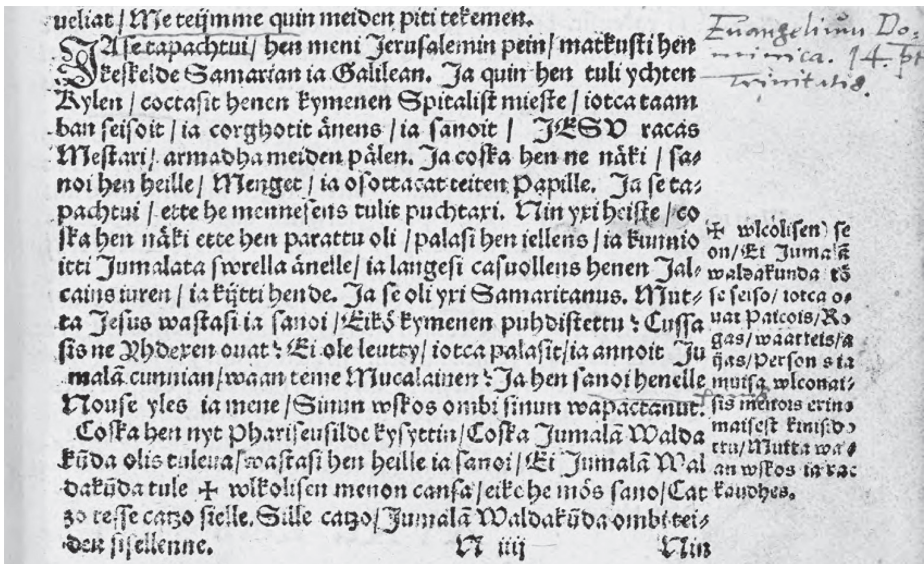 ueliat/ Me teijmme quin meiden piti tekemen.
JA se tapachtui/ hen meni Jerusalemin pein/ matkusti hen
keskelde Samarian ia Galilean. Ja quin hen tuli ychten
Kylen/ coctasit henen kymenen Spitalist mieste/ iotca taam
ban seisoit/ ia corghotit änens/ ia sanoit/ JESV racas
Mestari/ armadha meiden pälen. Ja coska hen ne näki/ sa⸗
noi hen heille/ Menget/ ia osottacat teiten Papille. Ja se ta⸗
pachtui/ ette he mennesens tulit puchtaxi. Nin yxi heiste/ co
ska hen näki ette hen parattu oli/ palasi hen iellens/ ia kunnio
itti Jumalata swrella änelle/ ia langesi casuollens henen Jal⸗
cains iuren/ ia kijtti hende. Ja se oli yxi Samaritanus. Mut⸗
ta Jesus wastasi ia sanoi/ Eikö kymenen puhdistettu? Cussa
sis ne Yhdexen ouat? Ei ole leutty/ iotca palasit/ ia annoit Ju
malã cunnian/ waan teme Mucalainen? Ja hen sanoi henelle
Nouse yles ia mene/ Sinun wskos ombi sinun wapactanut.
Coska hen nyt Phariseusilde kysyttin/ Coska Jumalã Walda
kũda olis tuleua/ wastasi hen heille ia sanoi/ Ei Jumalã Wal
dakũda tule ✠ wlkolisen menon cansa/ eike he mös sano/ Cat
zo tesse catzo sielle. Sille catzo/ Jumalã Waldakũda ombi tei⸗
den sisellenne.
N iiij Nin
Euangelium Do-
minica. 14. pt
Trinitatis.
✠ wlcolisen) se
on/ Ei Jumalã
waldakunda tö
se seiso/ iotca o⸗
uat Paicois/ Ro
gas/ waatteis/ a
ijas/ Person s ia
muisa wlconai⸗
sis menois erino
maisest kinisdo
ttu/ Mutta wa⸗
an wskos ia rac
kaudhes.